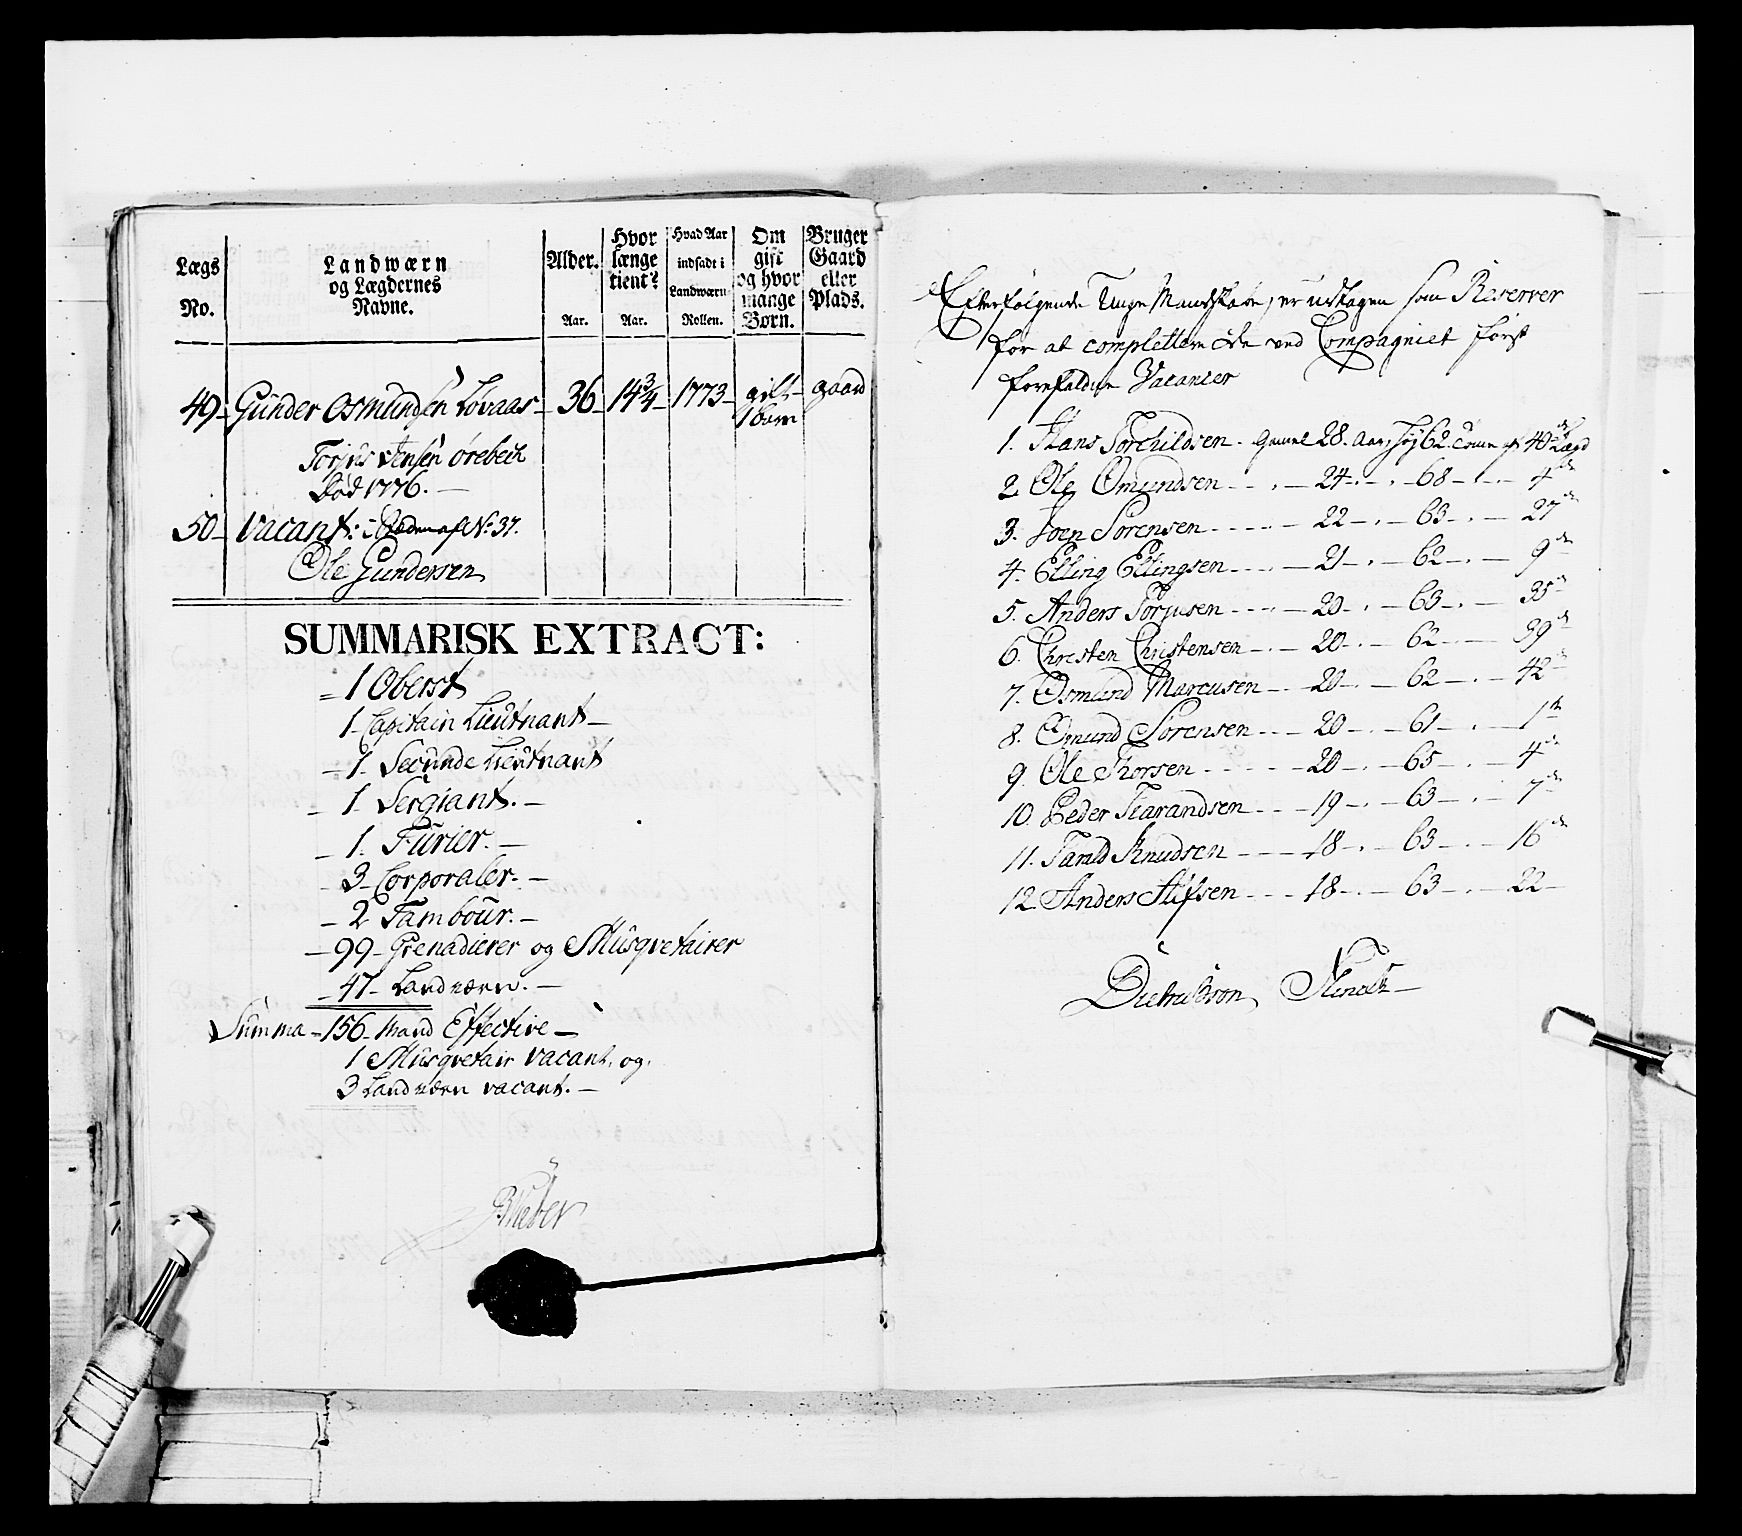 Lægs No. | Landwærn og Lægdernes Navne. | Alder. Aar. | Hvor længe tient? Aar. | Hvad Aar indsadt i Landwærn Rollen. | Om gift og hvor mange Børn. | Bruger Gaard eller Plads.
49 - Gunder Osmundsen Lövaas - 36 - 14 3/4 - 1773 - gift - gaard
1 barn
Torjus Jensen örebech
Död 1776. -
50 - Vacant: i Steden af No: 37.
Ole Gundersen
SUMMARISK EXTRACT:
- 1 Oberst
1 - Capitain Lieutnant -
- 1. Secunde Lieutnant
- 1. Sergiant. -
- 1. Furier. -
- 3 - Corporaler. -
- 2 Tambour. -
- 99 - Grenadierer og Musqvetairer
- 47 - Landværn. -
Summa - 156 - Mand Effective -
1 Musqvetair vacant, og.
3 Landværn vacant. -
Efterfølgende Unge Mandskabe, er udtagen som Reserver
for at complettere de ved Compagniet först
forefaldne Vacancer
1. Hans Torchildsen - gamel 28. Aar, høj 62. Tome af 40de Lægd
2. Ole Omundsen - - . - 24 - . - . - 68 - . - 4de
3. Joen Sörensen - - - - 22 - . - 63 - . - 27de
4. Elling Ellingsen - - - 21 - . - 62 - . - 9de
5. Anders Torjusen - - - - 20 - . - 63 - . - 35de
6. Christen Christensen - . - 20 - . - 62 - . - 39de
7. Osmund Marcusen - - 20 - . - 62 - . - 42de
8. Omund Sörensen - - - 20 - . - 61 - . - 1te
9. Ole Thorsen - - - - - 20 - . - 65 - . - 4de
10. Peder Harandsen - - - 19 - . - 63 - . - 7de
11. Tarald Knudsen - - - 18 - . - 63 - . - 16de
12. Anders Alifsen - - - 18 - . - 63 - . - 22 -